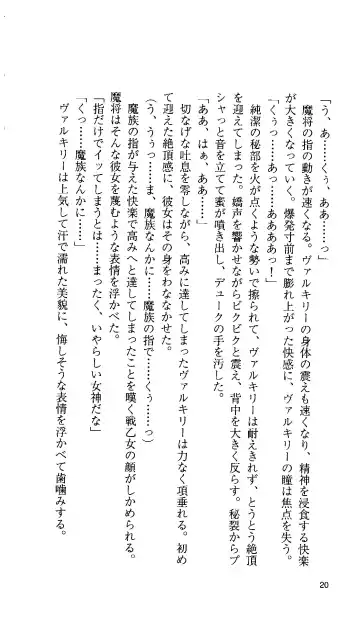 「う、あ……くぅ、ああ……っ」
　魔将の指の動きが速くなる。ヴァルキリーの身体の震えも速くなり、精神を浸食する快楽
が大きくなっていく。爆発寸前まで膨れ上がった快感に、ヴァルキリーの瞳は焦点を失う。
「くぅっ……あっ……ああああっ！」
　純潔の秘部を火が点くような勢いで擦られて、ヴァルキリーは耐えきれず、とうとう絶頂
を迎えてしまった。嬌声を響かせながらビクビクと震え、背中を大きく反らす。秘裂からプ
シャっと音を立てて蜜が噴き出し、デュークの手を汚した。
「ああ、はぁ、ああ……」
　切なげな吐息を零しながら、高みに達してしまったヴァルキリーは力なく項垂れる。初め
て迎えた絶頂感に、彼女はその身をわななかせた。
（う、うぅっ……ま、魔族なんかに……魔族の指で……くぅ……っ）
　魔族の指が与えた快楽で高みへと達してしまったことを嘆く戦乙女の顔がしかめられる。
魔将はそんな彼女を蔑むような表情を浮かべた。
「指だけでイッてしまうとは……まったく、いやらしい女神だな」
「くっ……魔族なんかに……」
　ヴァルキリーは上気して汗で濡れた美貌に、悔しそうな表情を浮かべて歯噛みする。
20